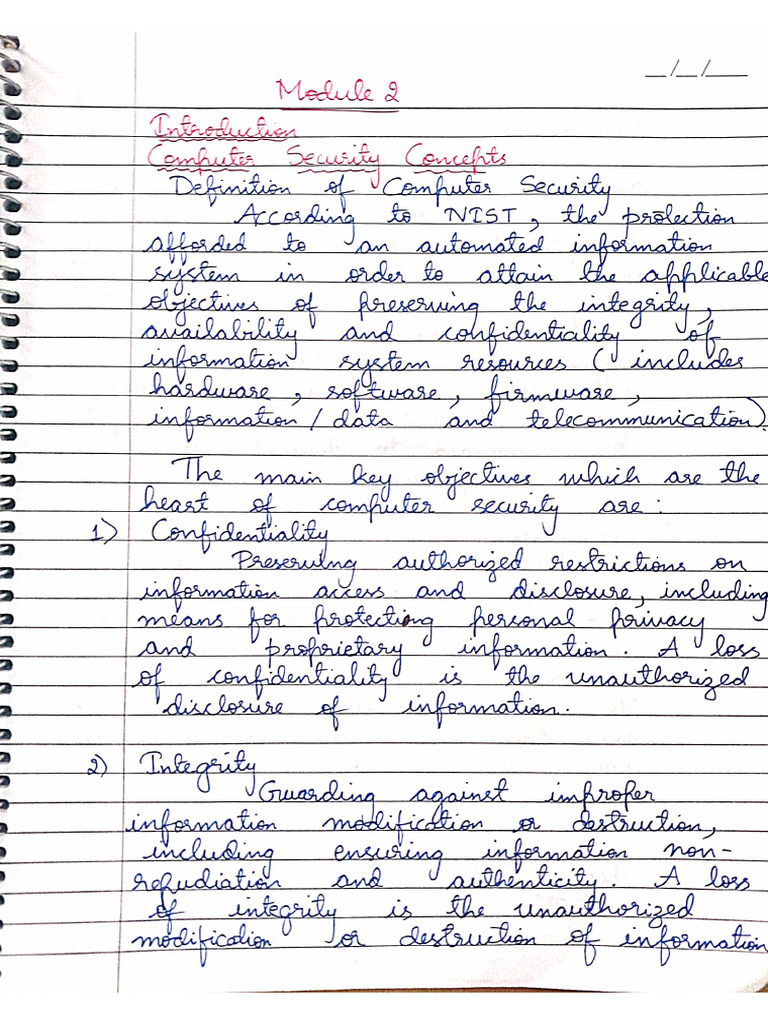 __/__/___
Module 2
Introduction
Computer Security Concepts
Definition of Computer Security
According to NIST, the protection
afforded to an automated information
system in order to attain the applicable
objectives of preserving the integrity,
availability and confidentiality of
information system resources (includes
hardware, software, firmware,
information/data and telecommunication).
The main key objectives which are the
heart of computer security are:
1) Confidentiality
Preserving authorized restrictions on
information access and disclosure, including
means for protecting personal privacy
and proprietary information. A loss
of confidentiality is the unauthorized
disclosure of information.
2) Integrity
Guarding against improper
information modification or destruction,
including ensuring information non-
repudiation and authenticity. A loss
of integrity is the unauthorized
modification or destruction of information